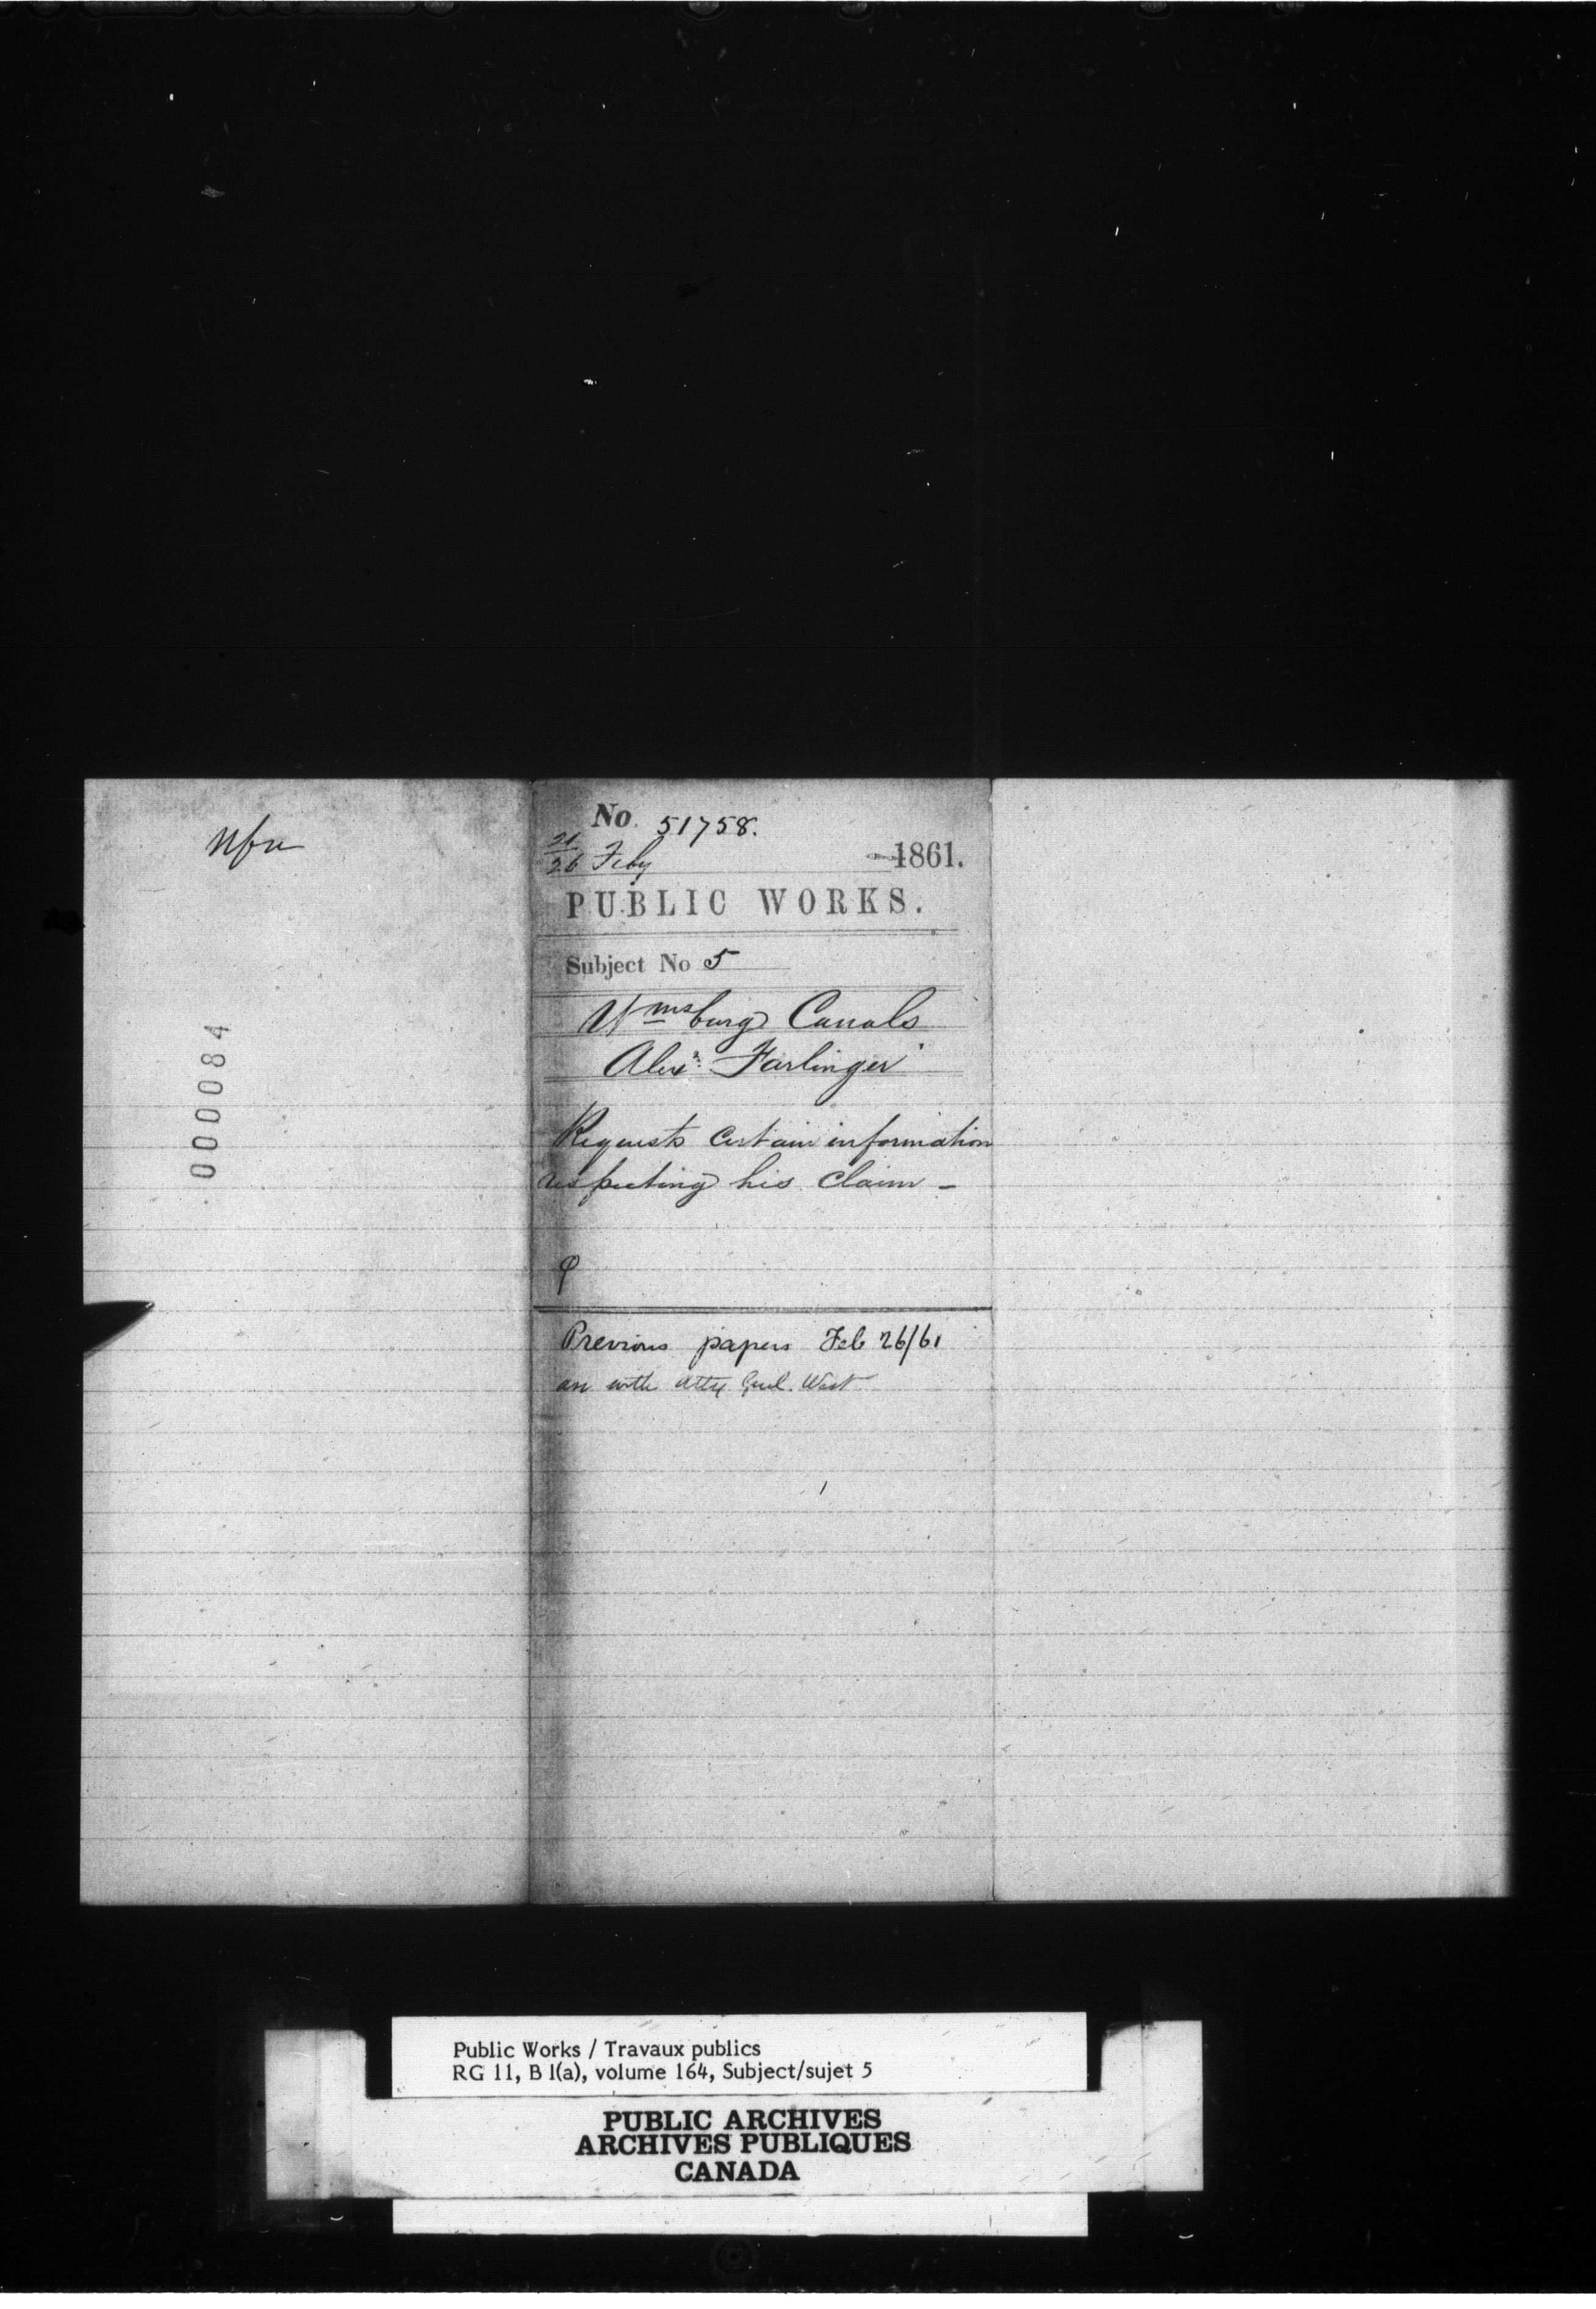 No. 51758.
26 Feby 1861.
PUBLIC WORKS.
Subject No 5
Wmsburg Canals
Alexr Farlinger
Requests Certain information
respecting his Claim -
Previous papers Feb 26/61
are with Atty Genl. West
000084
Public Works / Travaux publics
RG 11, B 1(a), volume 164, Subject/sujet 5
PUBLIC ARCHIVES
ARCHIVES PUBLIQUES
CANADA